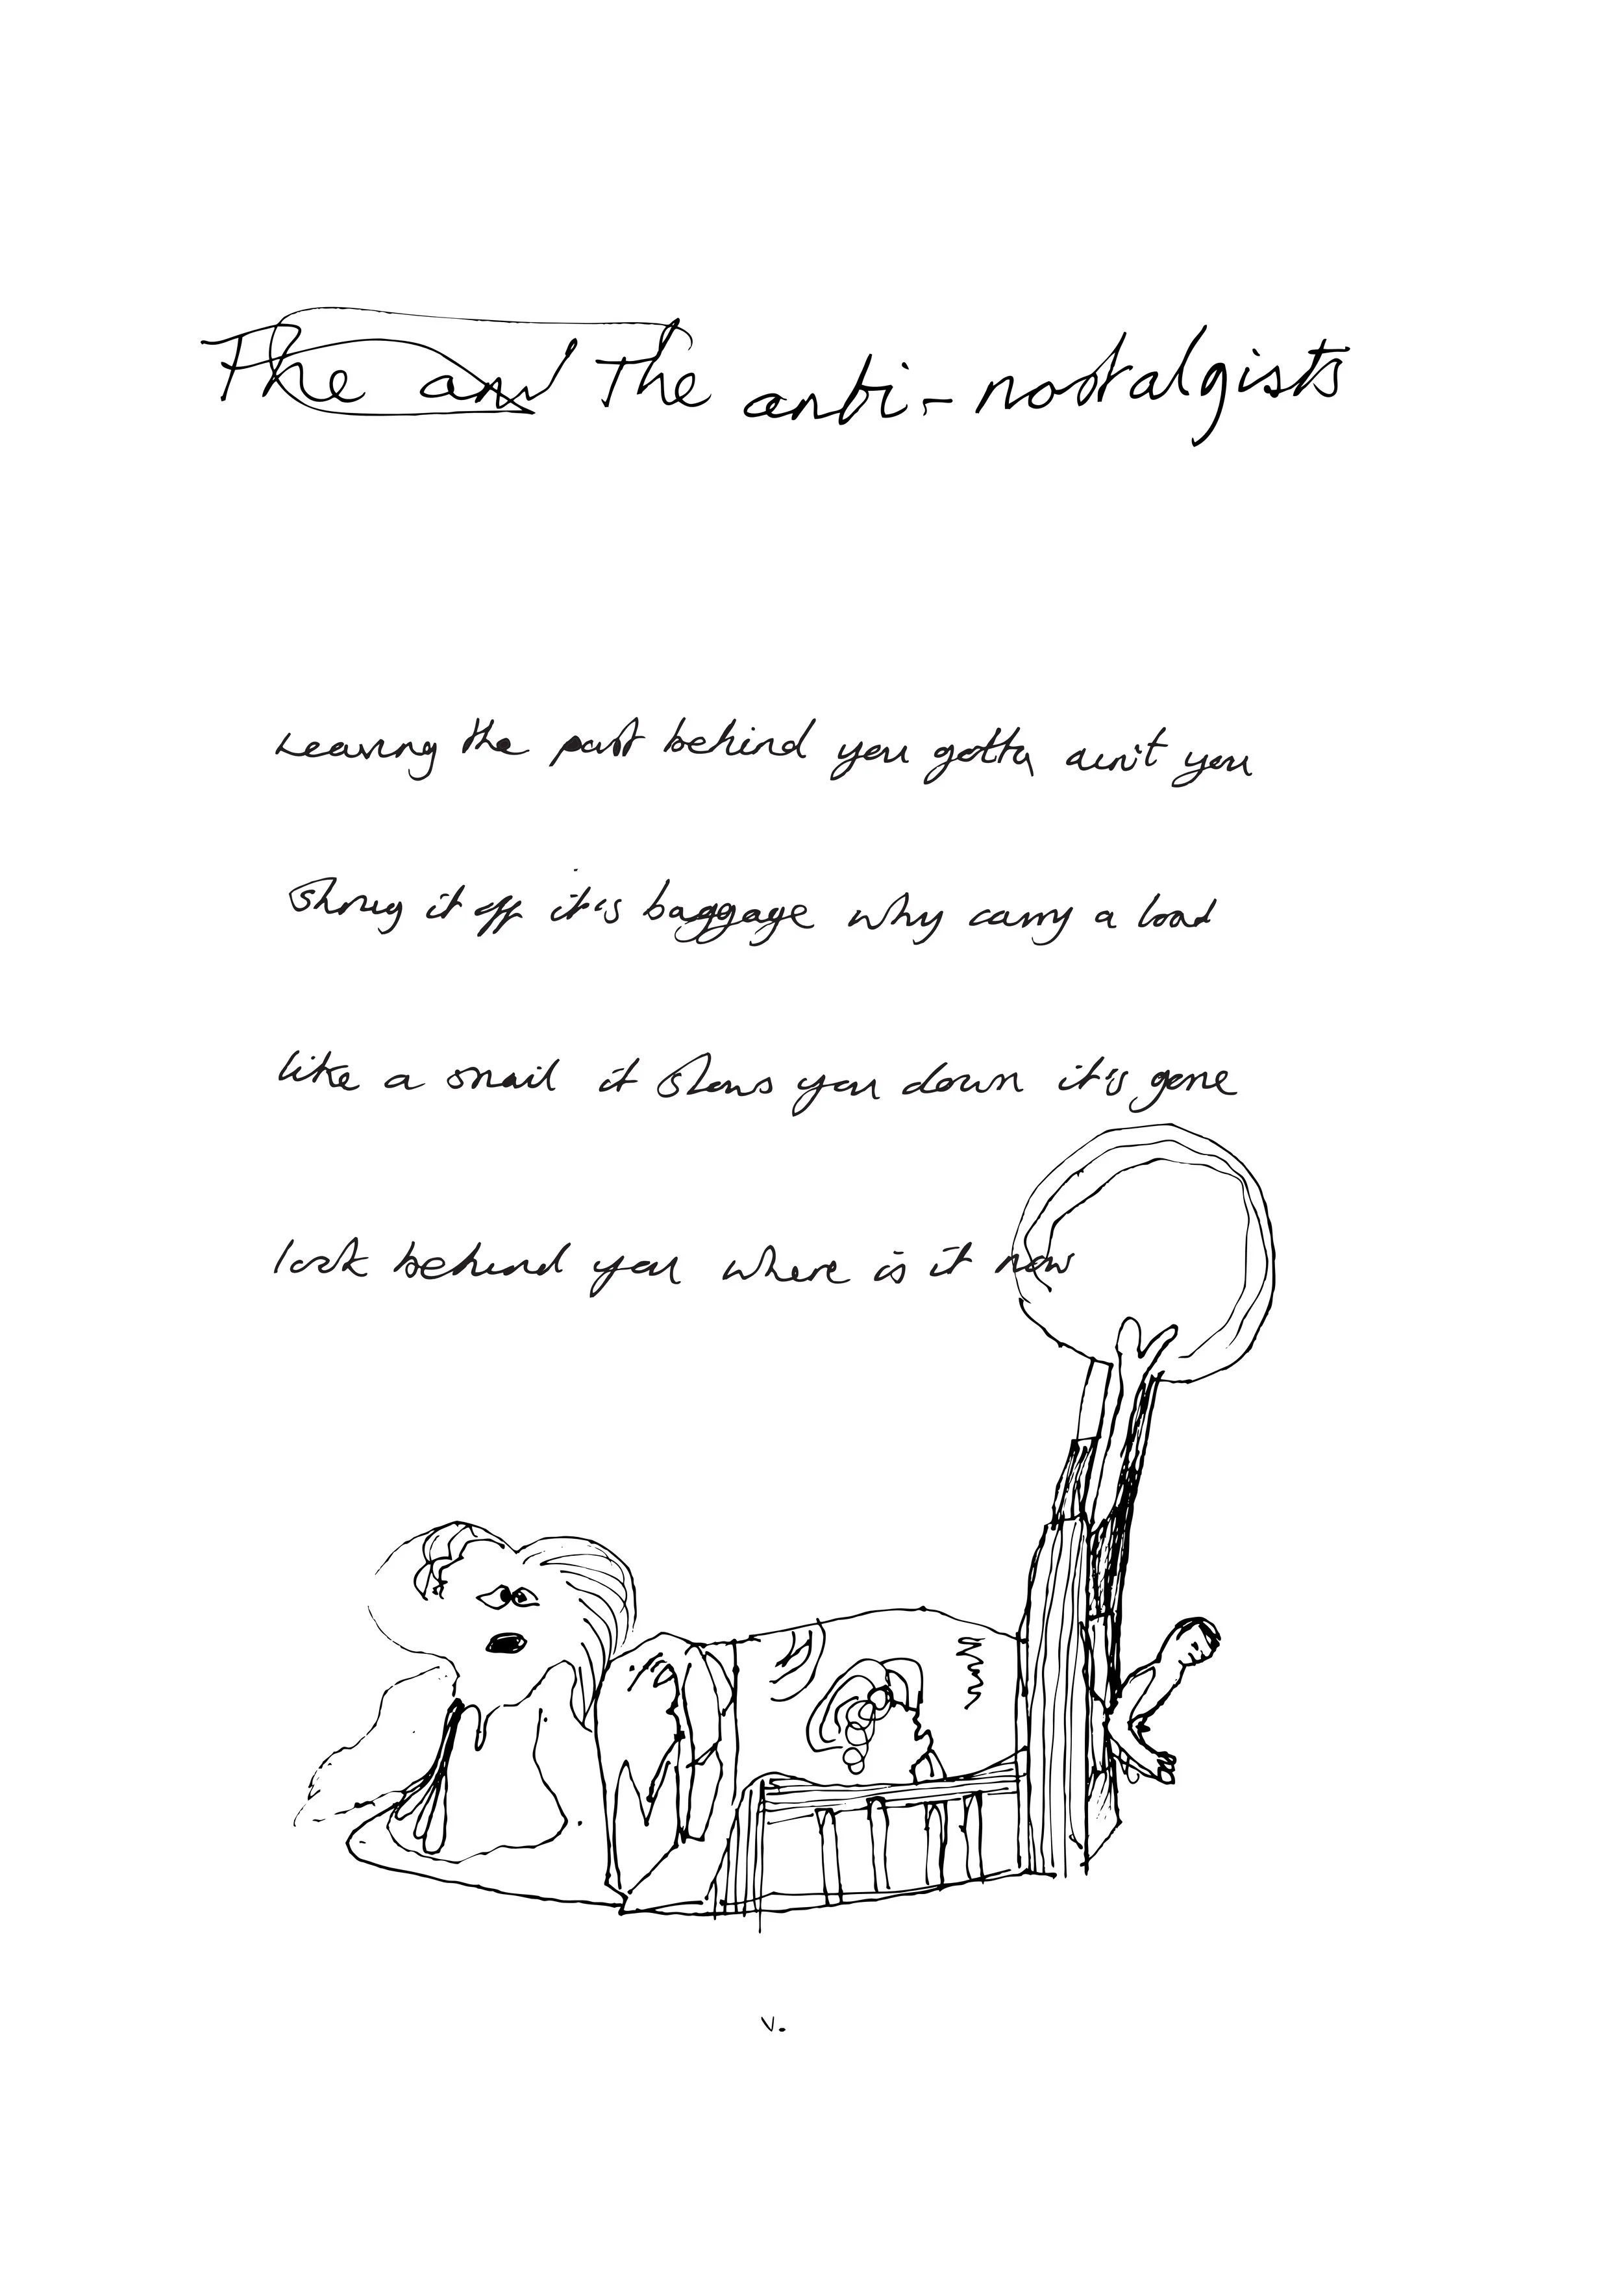 The and The anti-nostalgists
Leaving the past behind you gotta ain't you
Shrug it off it's baggage why carry a load
like a snail it slows you down it's gone
look behind you where is it now
v.